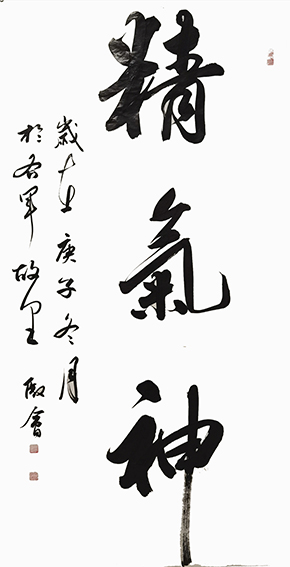 精氣神
歲在庚子冬月
於右軍故里